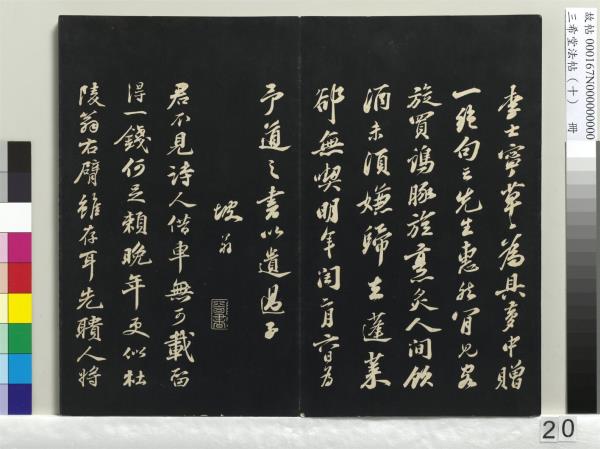 李士寧草草為具夢中贈
一絕句云先生惠然肯見客
旋買鷄豚旋烹炙人間飲
酒未須嫌歸去蓬萊
卻無喫明年閏二月六日為
予道之書以遺過子
坡翁
君不見詩人借車無可載留
得一錢何足賴晚年更似杜
陵翁右臂雖存耳先聵人將
故帖 000167N000000000
三希堂法帖(十) 冊
20